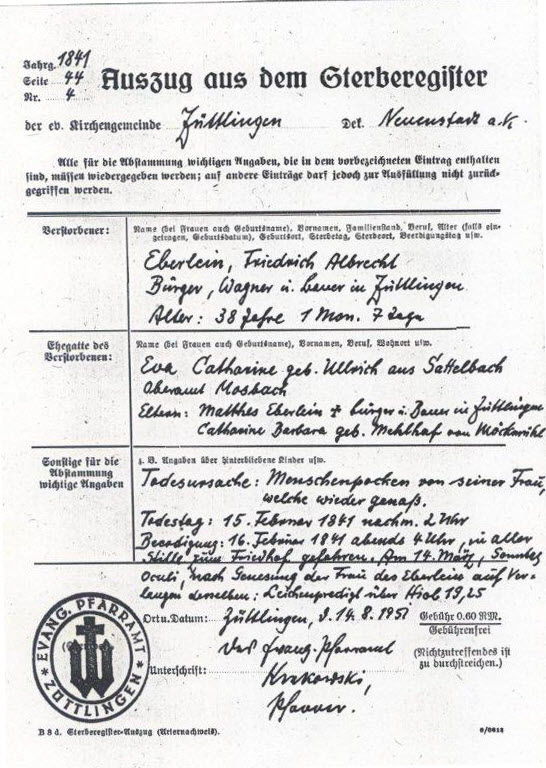 Jahrg. 1841
Seite 44
Nr. 4
Auszug aus dem Sterberegister
der ev. Kirchengemeinde Züttlingen Dek. Neuenstadt a.K.
Alle für die Abstammung wichtigen Angaben, die in dem vorbezeichneten Eintrag enthalten
sind, müssen wiedergegeben werden; auf andere Einträge darf jedoch zur Ausfüllung nicht zurück-
gegriffen werden.
Verstorbener:
Name (bei Frauen auch Geburtsname), Vornamen, Familienstand, Beruf, Alter (falls ein-
getragen, Geburtsdatum), Geburtsort, Sterbetag, Sterbeort, Beerdigungstag usw.
Eberlein, Friedrich Albrecht
Bürger, Wagner u. Bauer in Züttlingen
Alter: 38 Jahre 1 Mon. 7 Tage
Ehegatte des
Verstorbenen:
Name (bei Frauen auch Geburtsname), Vornamen, Beruf, Wohnort usw.
Eva Catharine geb. Ullrich aus Sattelbach
Oberamt Mosbach
Eltern: Matthes Eberlein + Bürger u. Bauer in Züttlingen
Catharine Barbara geb. Mehlhaf von Möckmühl
Sonstige für die
Abstammung
wichtige Angaben
z. B. Angaben über hinterbliebene Kinder usw.
Todesursache: Menschenpocken von seiner Frau,
welche wieder genaß.
Todestag: 15. Februar 1841 nachm. 2 Uhr
Beerdigung: 16. Februar 1841 abends 4 Uhr, in aller
Stille zum Friedhof gefahren. Am 14. März, Sonntag
Oculi, nach Genesung der Frau des Eberleins auf Ver-
langen derselben: Leichenpredigt über Hiob 19,25
EVANG. PFARRAMT
ZÜTTLINGEN
Ort u. Datum: Züttlingen, d. 14.8.1951
Gebühr 0.60 RM.
Gebührenfrei
(Nichtzutreffendes ist
zu durchstreichen.)
Das Evang. Pfarramt
Unterschrift: Krakowski,
Pfarrer.
B 8 d. Sterberegister-Auszug (Ariernachweis).